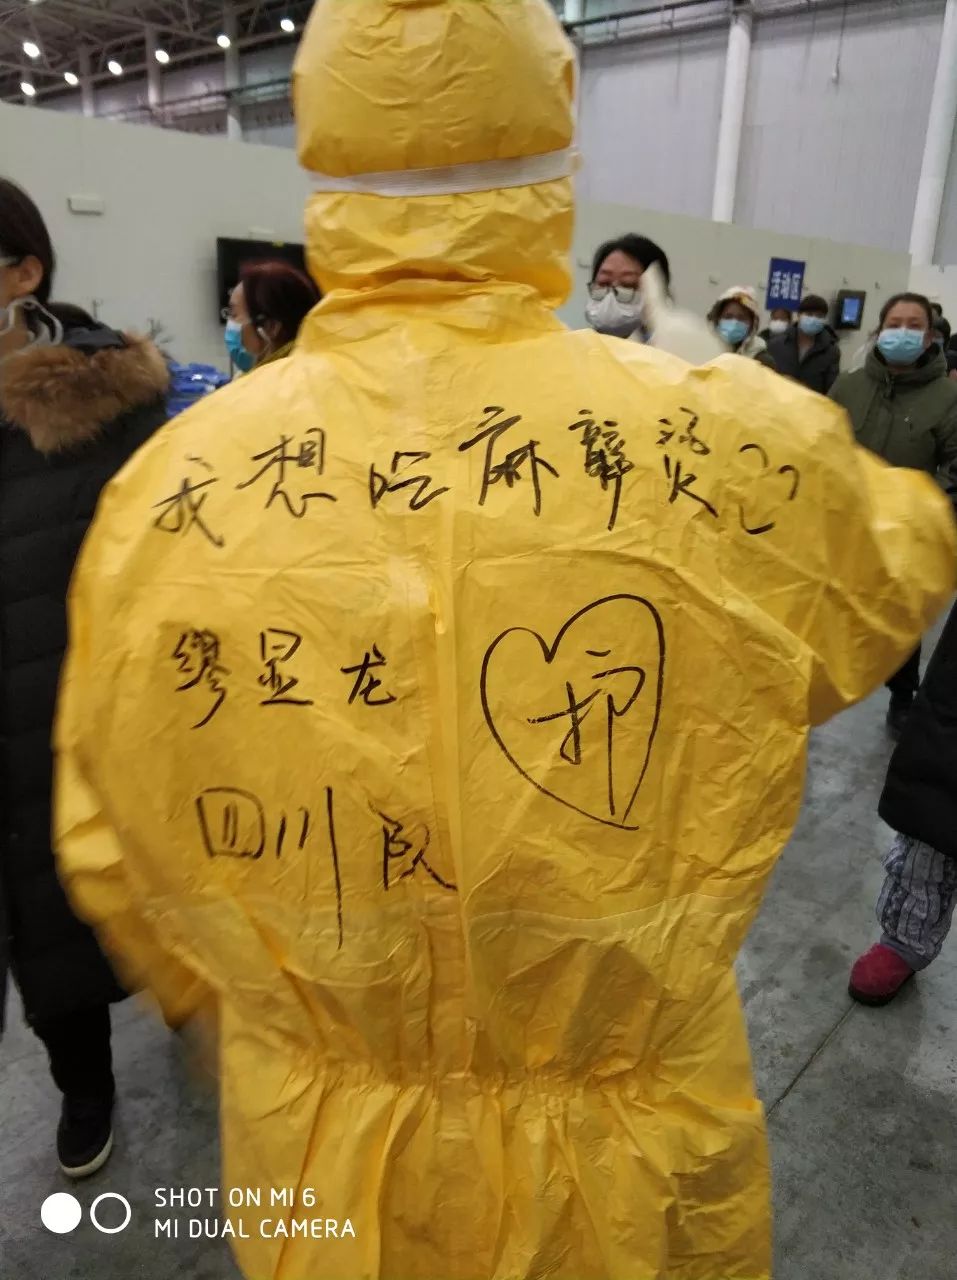 活动区
我想吃麻辣烫
缪显龙
护
四川队
SHOT ON MI 6
MI DUAL CAMERA